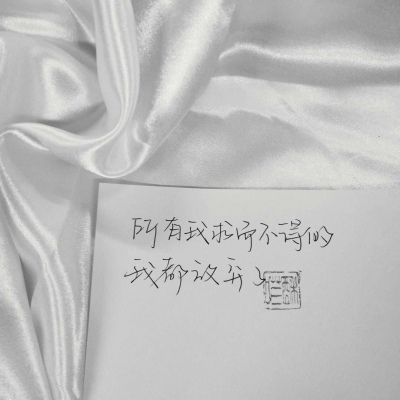 所有我求而不得的
我都放弃